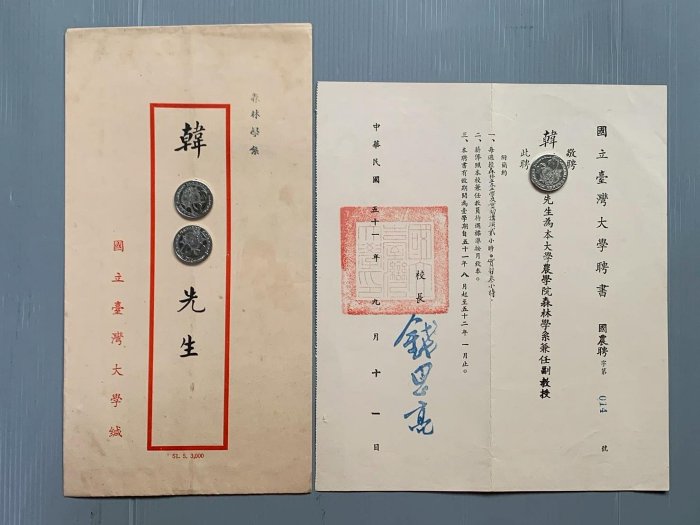 森林學系
韓 先生
國立臺灣大學緘
51. 5. 3,000
國立臺灣大學聘書 國農聘字第 014 號
敬聘
韓 先生為本大學農學院森林學系兼任副教授
此聘
附簡約
一、每週授森林 及實習講演貳小時。實習叁小時。
二、薪俸照本校兼任教員待遇標準按月致奉。
三、本聘書有效期間為壹學期自五十一年八月起至五十二年一月止。
校長 錢思亮
中華民國五十一年九月十一日